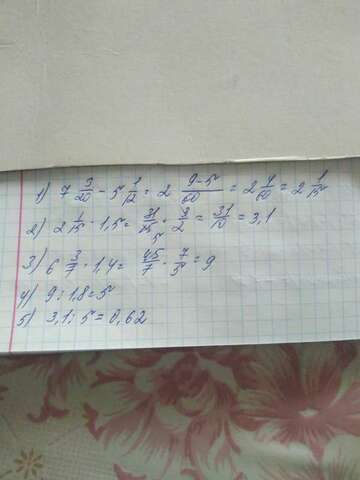 1) 7 3/20 - 5 1/12 = 2 (9-5)/60 = 2 4/60 = 2 1/15
2) 2 1/15 · 1,5 = 31/15 · 3/2 = 31/10 = 3,1
3) 6 3/7 · 1,4 = 45/7 · 7/5 = 9
4) 9 : 1,8 = 5
5) 3,1 : 5 = 0,62